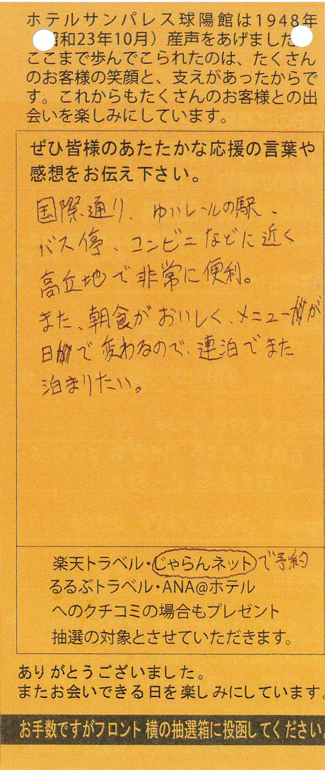 ホテルサンパレス球陽館は1948年
昭和23年10月）産声をあげました
ここまで歩んでこられたのは、たくさん
のお客様の笑顔と、支えがあったからで
す。これからもたくさんのお客様との出
会いを楽しみにしています。
ぜひ皆様のあたたかな応援の言葉や
感想をお伝え下さい。
国際通り、ゆいレールの駅、
バス停、コンビニなどに近く
高立地で非常に便利。
また、朝食がおいしく、メニューが
日で変わるので、連泊でまた
泊まりたい。
楽天トラベル・じゃらんネットで予約
るるぶトラベル・ANA@ホテル
へのクチコミの場合もプレゼント
抽選の対象とさせていただきます。
ありがとうございました。
またお会いできる日を楽しみにしています。
お手数ですがフロント横の抽選箱に投函してください。